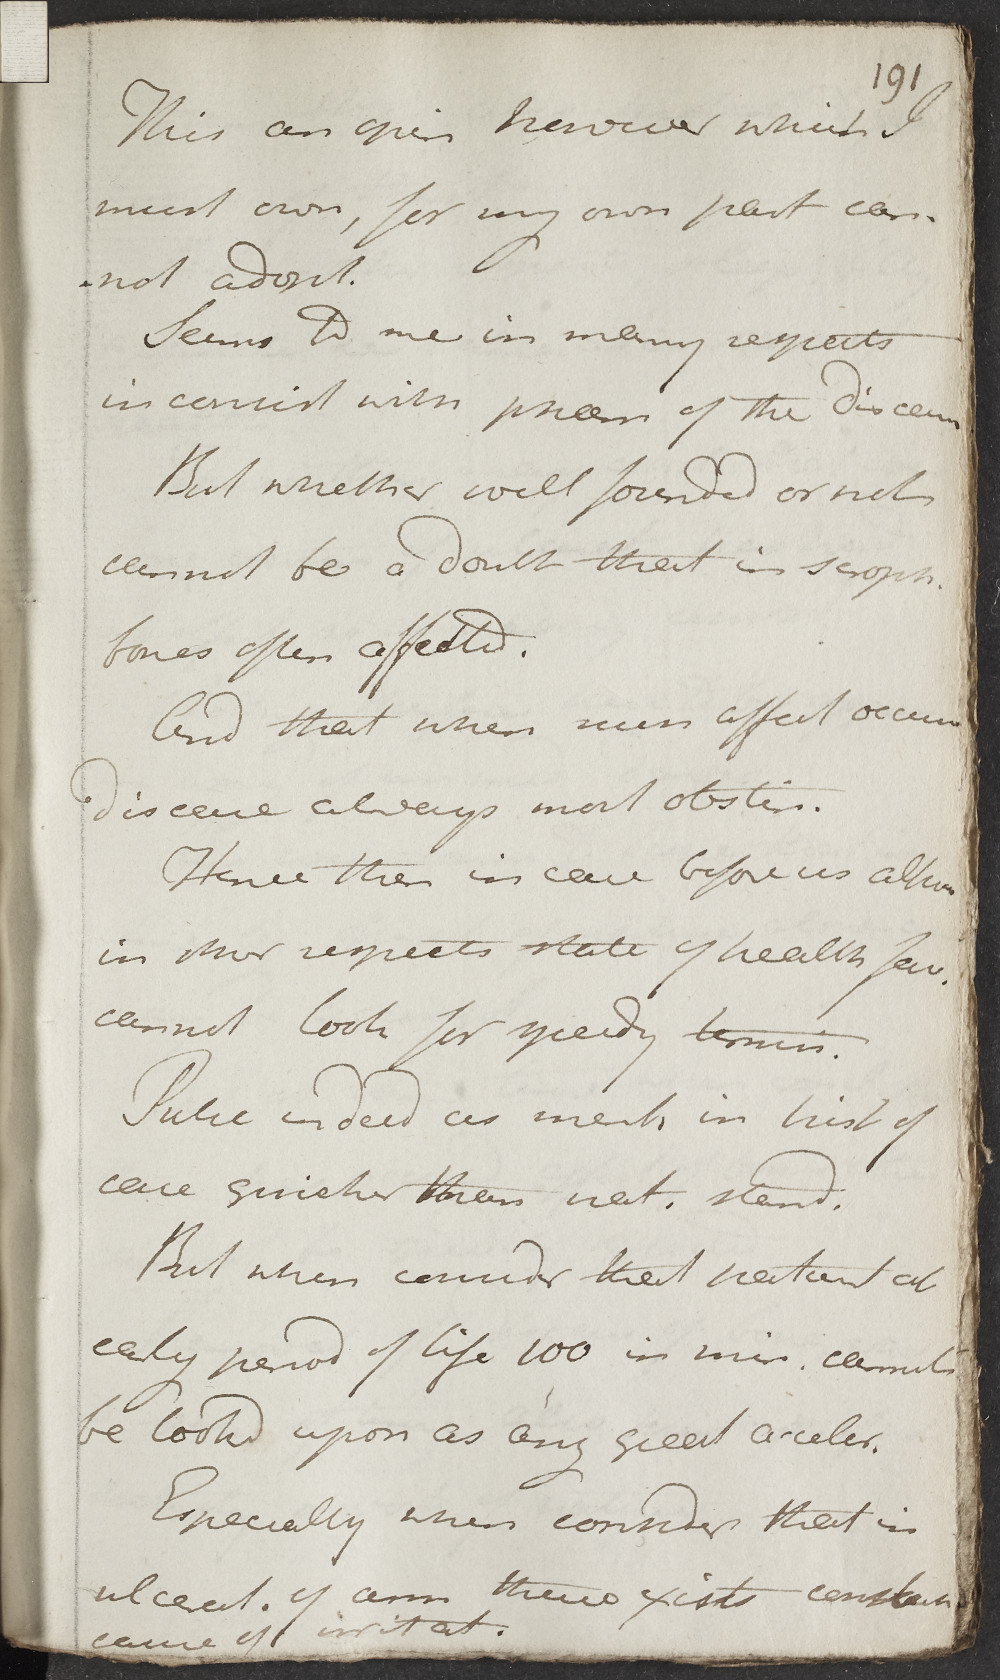 191
This an opin however which I
must own, for my own part can-
-not adopt.
Seems to me in many respects
inconsist with phaen of the disease
But whether well founded or not
cannot be a doubt that in scroph.
bones often affected.
And that when such affect occurs
disease always most obstin.
Hence then in case before us altho
in other respects state of health fav.
cannot look for speedy termin.
Pulse indeed as ment. in hist of
case quicker than nat. stand.
But when consider that patient at
early period of life 100 in min. cannot
be looked upon as any great acceler.
Especially when consider that in
ulcerat. of arm there exists constant
cause of irritat.